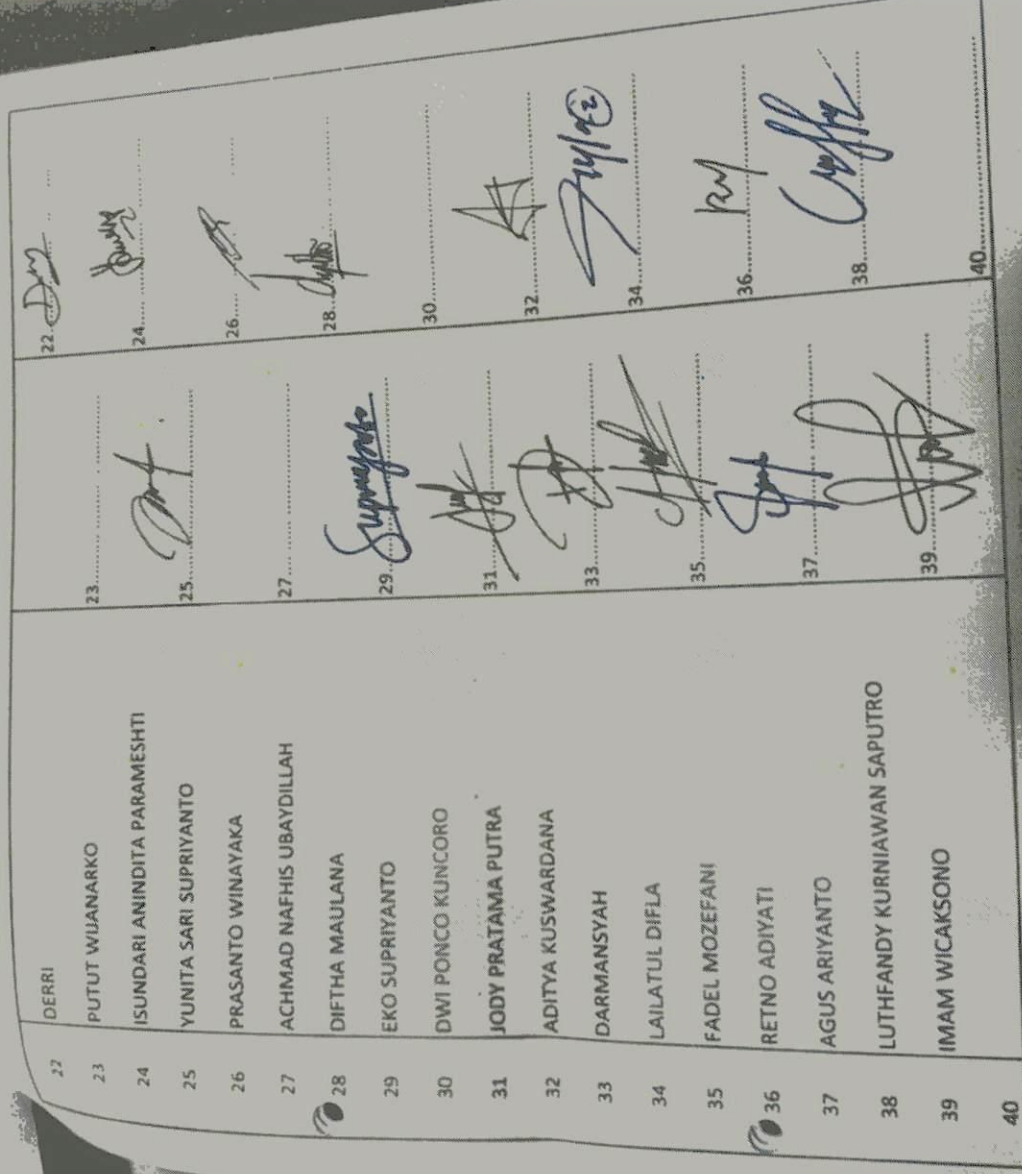 22 DERRI 22
23 PUTUT WIJANARKO 23
24 ISUNDARI ANINDITA PARAMESHTI 24
25 YUNITA SARI SUPRIYANTO 25
26 PRASANTO WINAYAKA 26
27 ACHMAD NAFHIS UBAYDILLAH 27
28 DIFTHA MAULANA 28
29 EKO SUPRIYANTO 29
30 DWI PONCO KUNCORO 30
31 JODY PRATAMA PUTRA 31
32 ADITYA KUSWARDANA 32
33 DARMANSYAH 33
34 LAILATUL DIFLA 34
35 FADEL MOZEFANI 35
36 RETNO ADIYATI 36
37 AGUS ARIYANTO 37
38 LUTHFANDY KURNIAWAN SAPUTRO 38
39 IMAM WICAKSONO 39
40 40